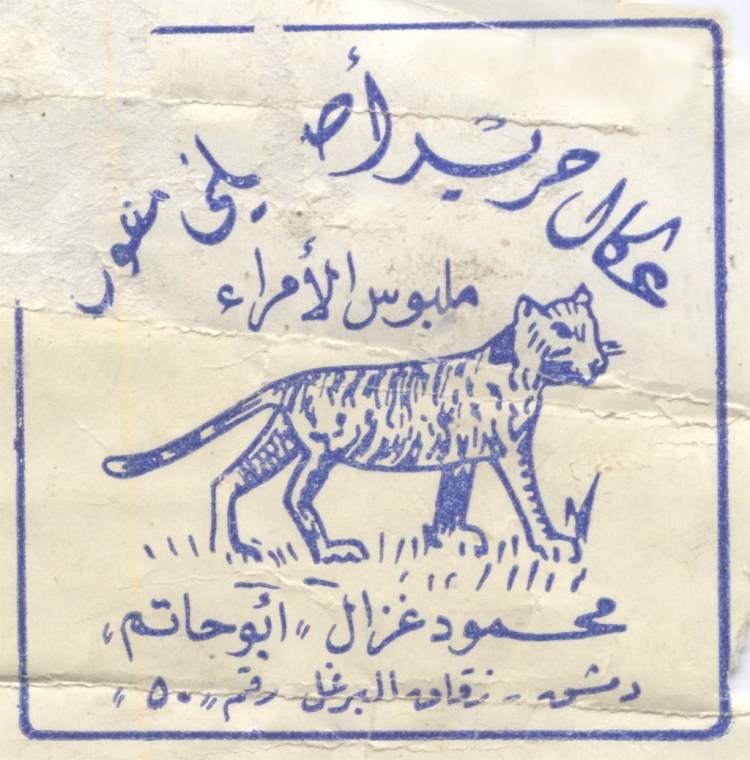 عكال حرير أصلي نمور
ملبوس الأمراء
محمود غزال "أبو حاتم"
دمشق - زقاق البرغل رقم "٥٠"